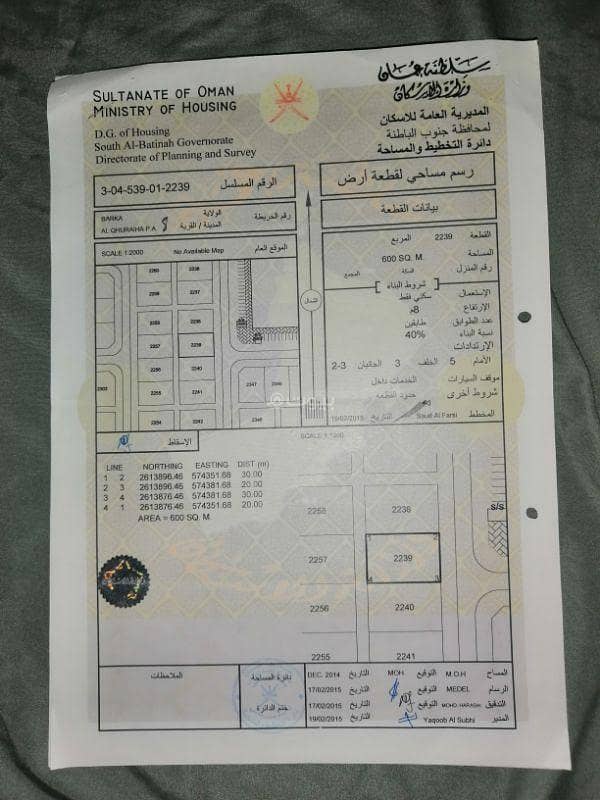 سلطنة عمان
وزارة الإسكان
SULTANATE OF OMAN
MINISTRY OF HOUSING
المديرية العامة للاسكان
لمحافظة جنوب الباطنة
دائرة التخطيط والمساحة
D.G. of Housing
South Al-Batinah Governorate
Directorate of Planning and Survey
رسم مساحي لقطعة أرض
3-04-539-01-2239 الرقم المسلسل
بيانات القطعة
BARKA الولاية
AL QHURAIHA P.A المدينة / القرية
رقم الخريطة
SCALE 1:2000 No Available Map الموقع العام
القطعة 2239 المربع
المساحة 600 SQ. M.
رقم المنزل السكة المجمع
شروط البناء
الإستعمال سكني فقط
الإرتفاع 8م
عدد الطوابق طابقين
نسبة البناء 40%
الإرتدادات
الأمام 5 الخلف 3 الجانبان 3-2
موقف السيارات الخدمات داخل
شروط أخرى حدود القطعه
المخطط Saud Al Farsi التاريخ 19/02/2015
الشمال
2238
2237
2236
2239
2240
2241
2347
الإسقاط
SCALE 1:1000
LINE NORTHING EASTING DIST (m)
1 2 2613896.46 574351.68 30.00
2 3 2613896.46 574381.68 20.00
3 4 2613876.46 574381.68 30.00
4 1 2613876.46 574351.68 20.00
AREA = 600 SQ. M.
S/S
2258
2238
2257
2239
2256
2240
2255
2241
الملاحظات
دائرة المساحة
ختم الدائرة
المساح M.O.H التوقيع MOH التاريخ DEC. 2014
الرسام MEDEL التوقيع التاريخ 17/02/2015
التدقيق MOHD.HARASHI التوقيع التاريخ 17/02/2015
المدير Yaqoob Al Subhi التوقيع التاريخ 19/02/2015